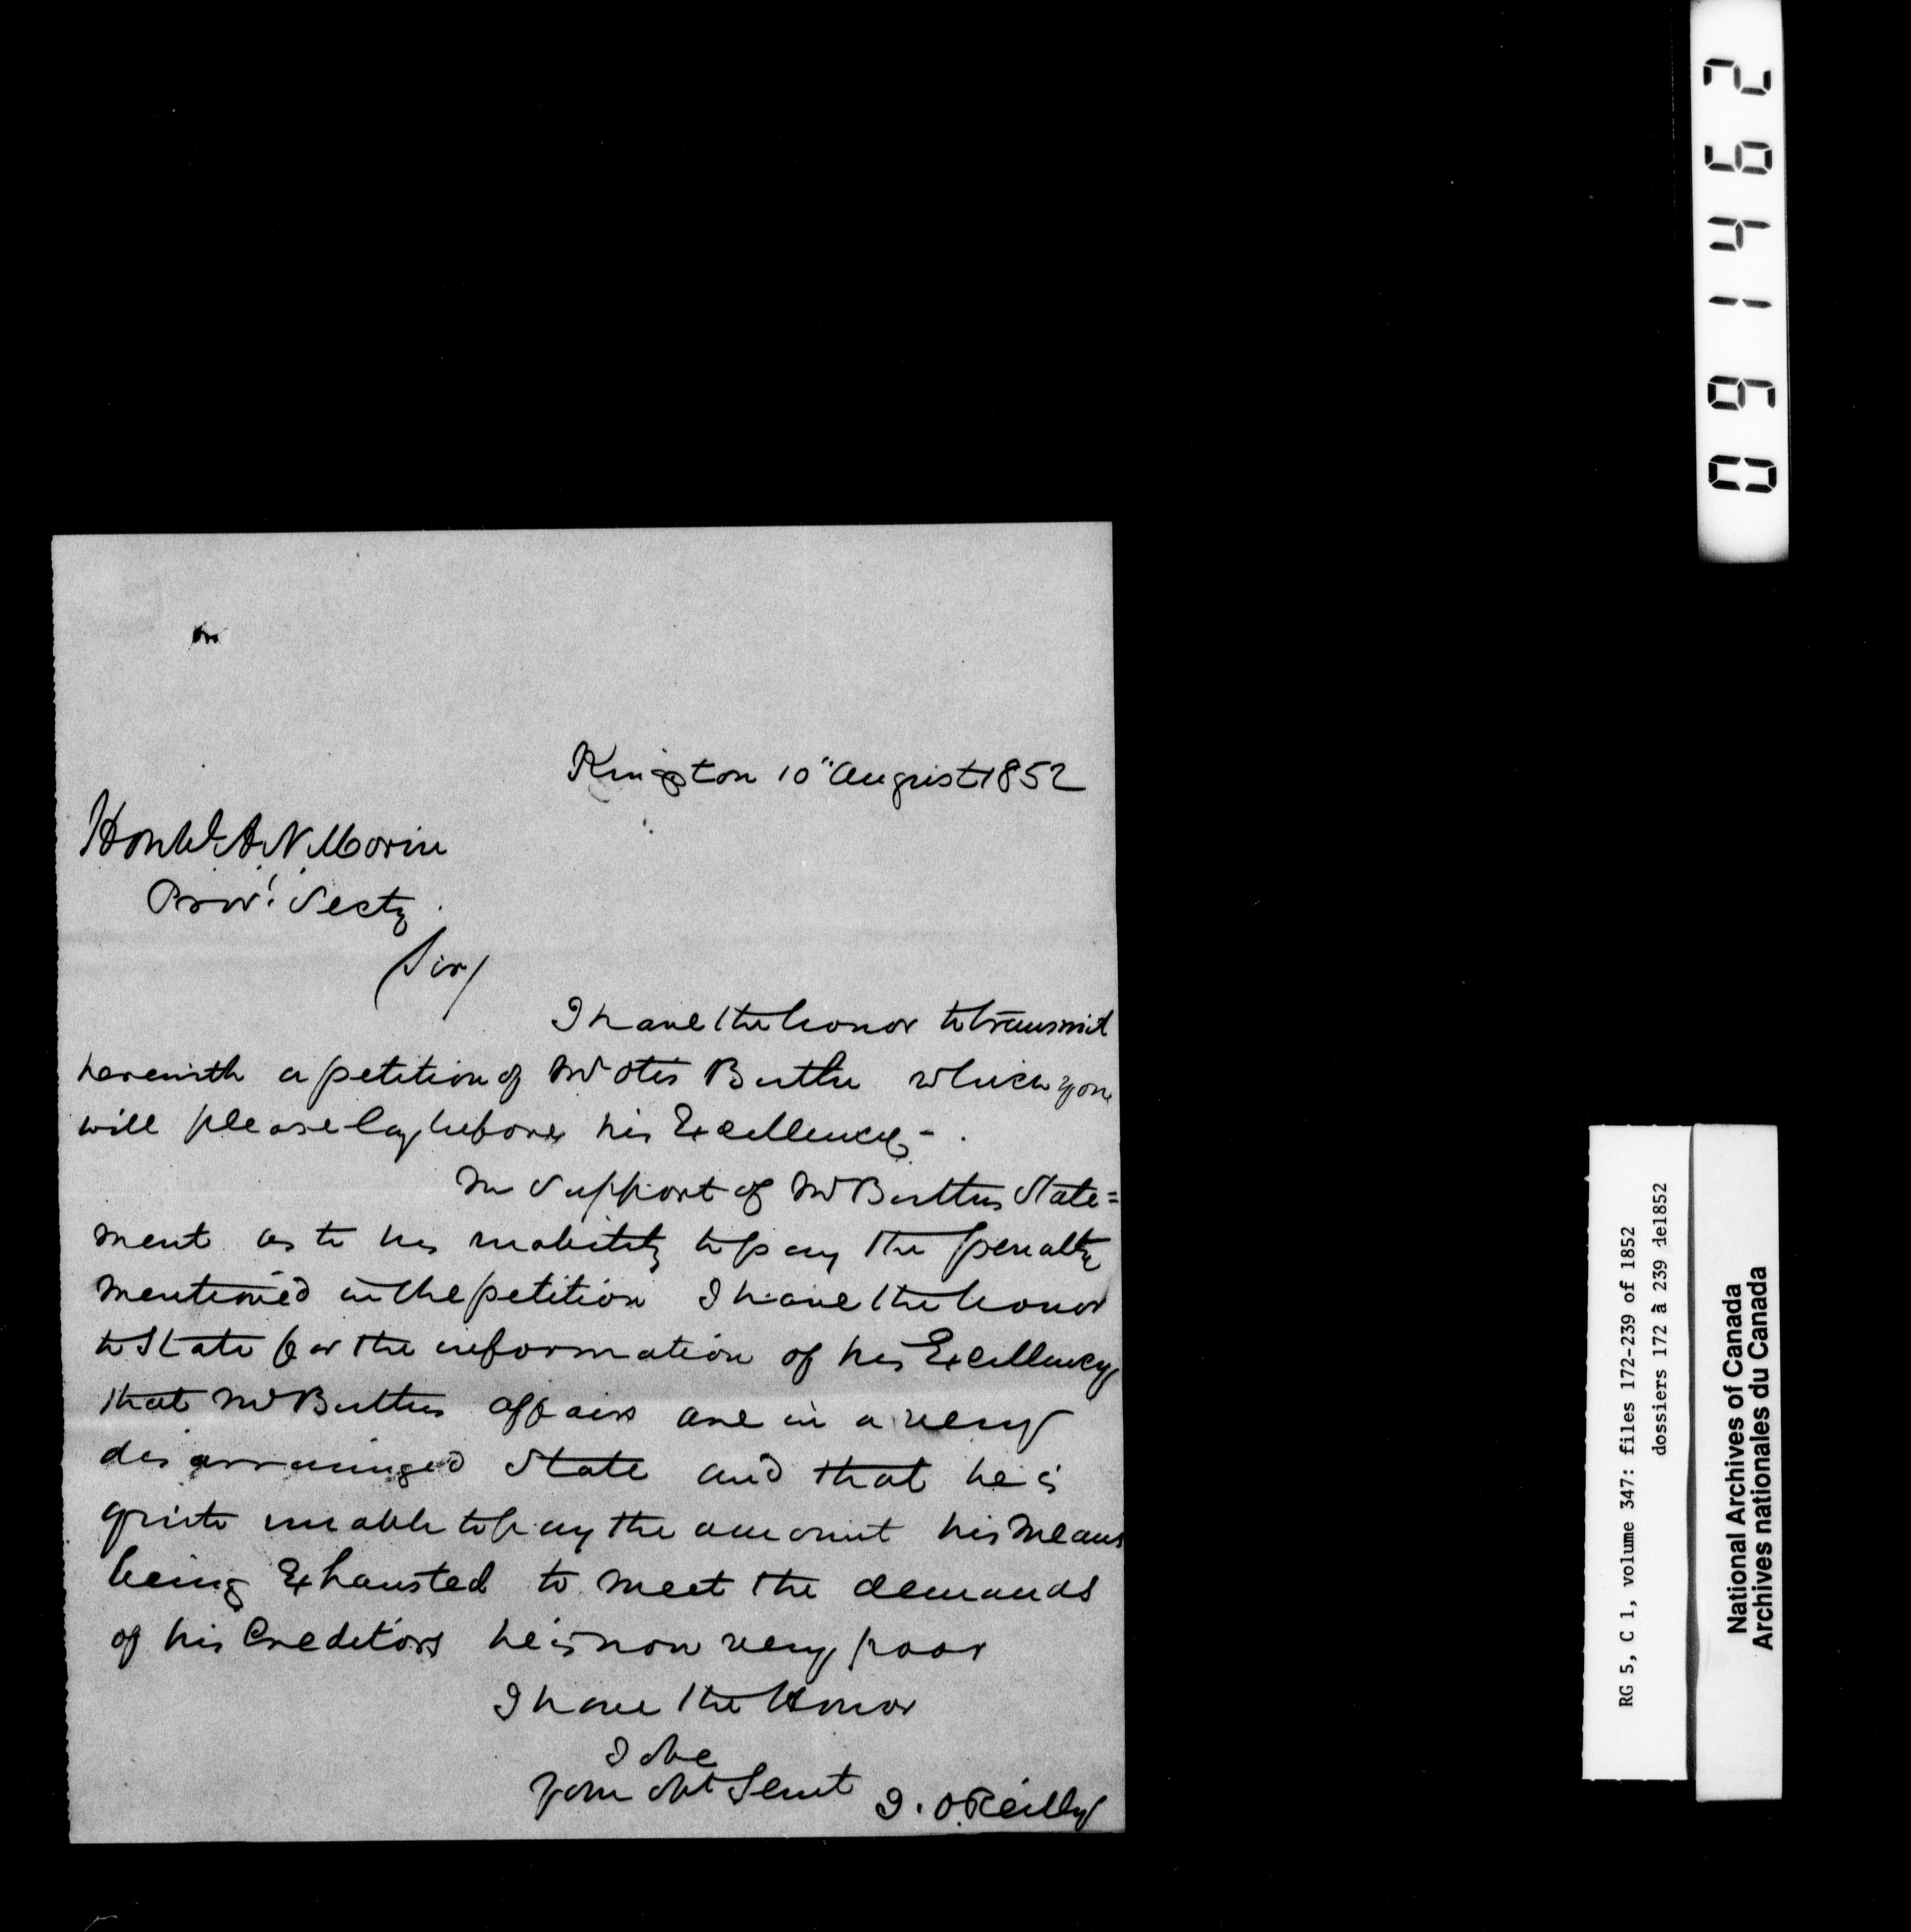 Kingston 10" August 1852
Honble A. N. Morin
Prov'l Secty.
Sir/
I have the honor to transmit
herewith a petition of Mr Otis Butler which you
will please lay before his Excellency -.
In support of Mr Butlers State=
ment as to his inability to pay the penalty
mentioned in the petition I have the honor
to State for the information of his Excellency
that Mr Butlers affairs are in a very
disarrainged State and that he is
quite unable to pay the amount his means
being Exhausted to meet the demands
of his Creditors he is now very poor
I have the Honor
To be
your obt Servt J. O.Reilly
091462
RG 5, C 1, volume 347: files 172-239 of 1852
dossiers 172 à 239 de1852
National Archives of Canada
Archives nationales du Canada